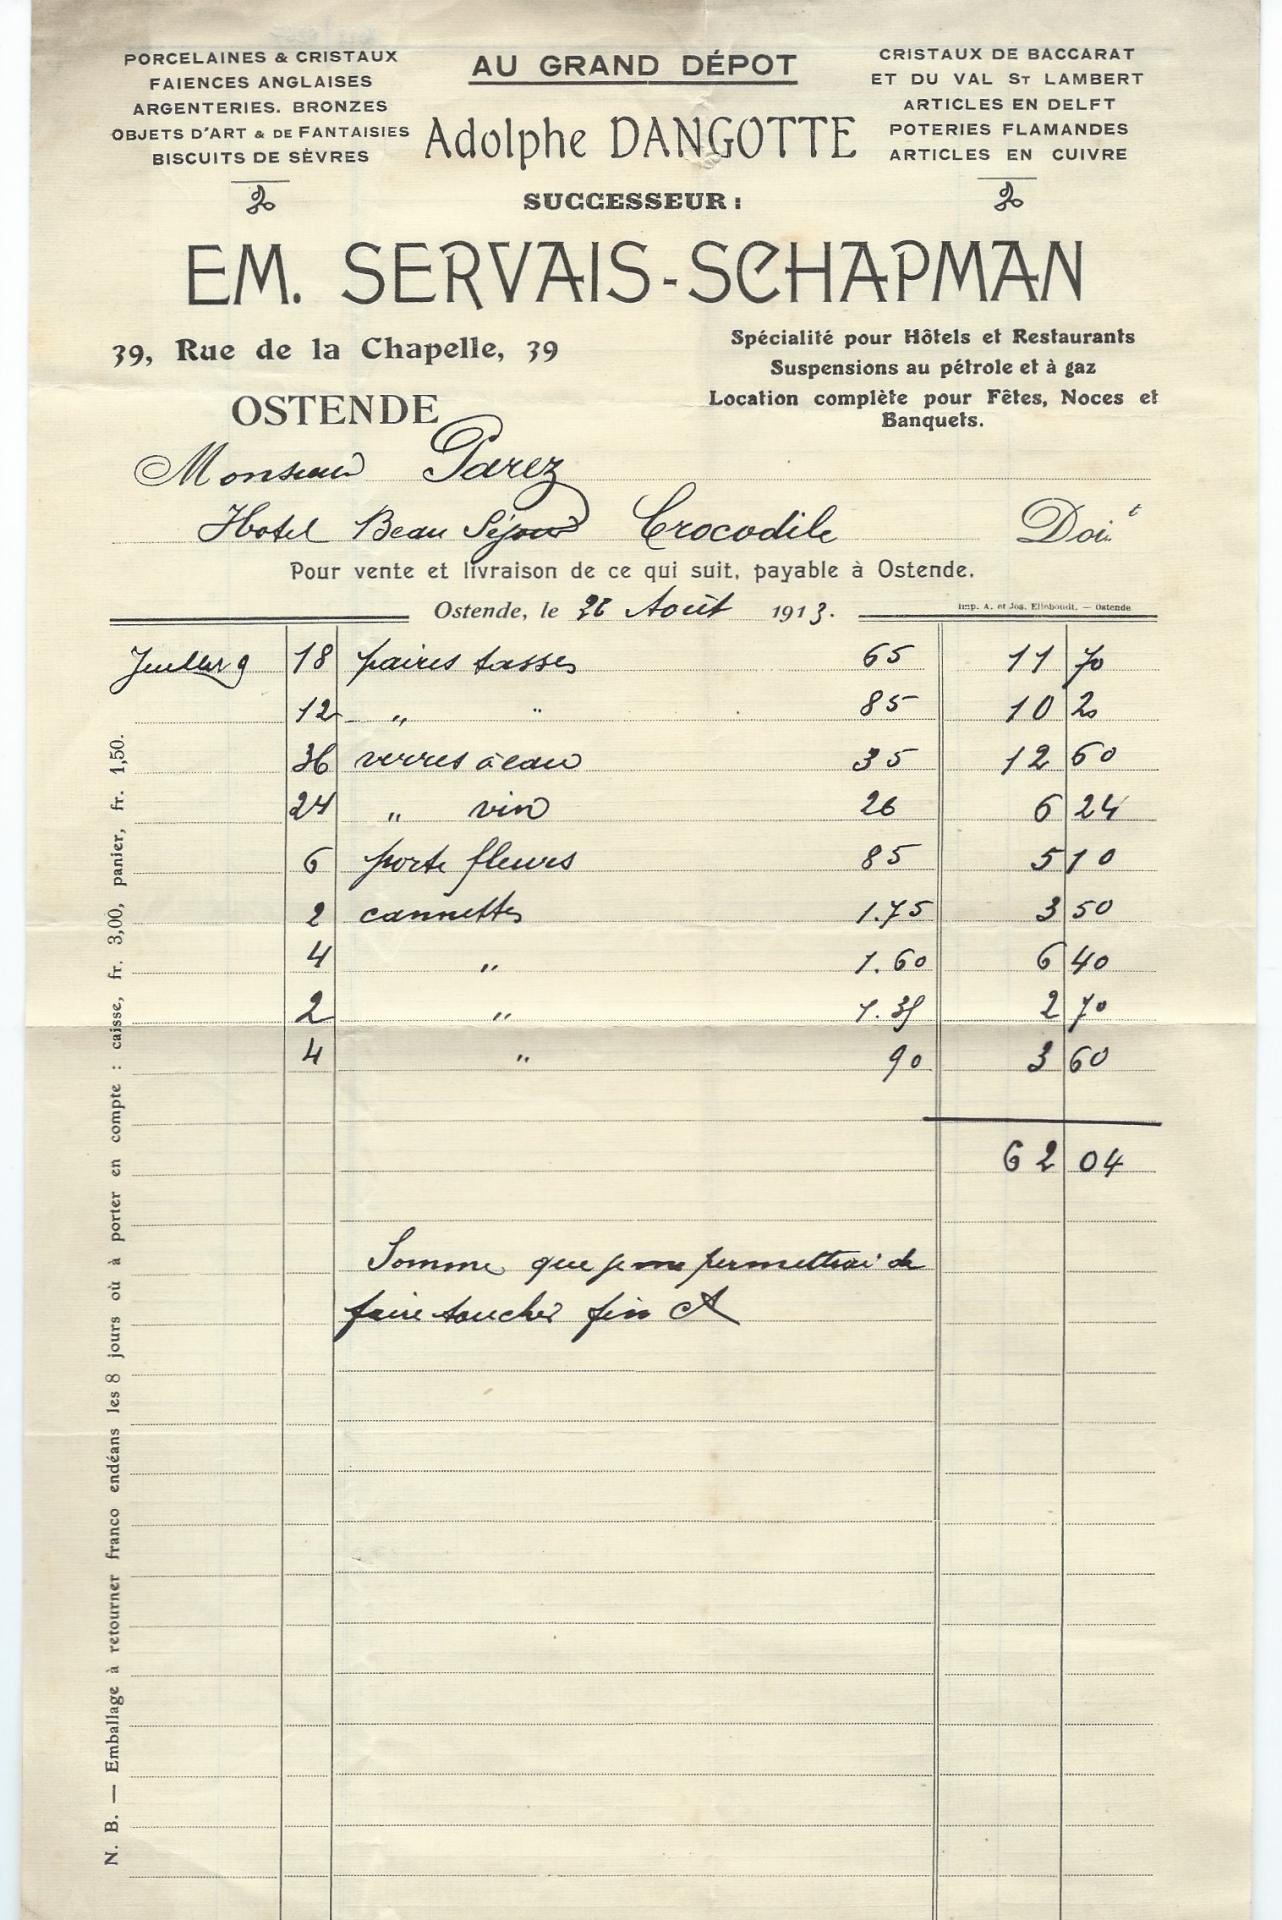 PORCELAINES & CRISTAUX
FAIENCES ANGLAISES
ARGENTERIES. BRONZES
OBJETS D'ART & DE FANTAISIES
BISCUITS DE SÈVRES
AU GRAND DÉPOT
Adolphe DANGOTTE
SUCCESSEUR :
CRISTAUX DE BACCARAT
ET DU VAL ST LAMBERT
ARTICLES EN DELFT
POTERIES FLAMANDES
ARTICLES EN CUIVRE
EM. SERVAIS-SCHAPMAN
39, Rue de la Chapelle, 39
OSTENDE
Spécialité pour Hôtels et Restaurants
Suspensions au pétrole et à gaz
Location complète pour Fêtes, Noces et
Banquets.
Monsieur Parez
Hotel Beau Séjour Crocodile Doit
Pour vente et livraison de ce qui suit, payable à Ostende.
Ostende, le 26 Août 1913.
Imp. A. et Jos. Elleboudt. — Ostende
Juillet 9 18 paires tasses 65 11 70
12 " " 85 10 20
36 verres à eau 35 12 60
24 " vin 26 6 24
6 porte fleurs 85 5 10
2 cannettes 1.75 3 50
4 " 1.60 6 40
2 " 1.35 2 70
4 " 90 3 60
62 04
Somme que je me permettrai de
faire toucher fin Ct
N. B. — Emballage à retourner franco endéans les 8 jours où à porter en compte : caisse, fr. 3,00, panier, fr. 1,50.